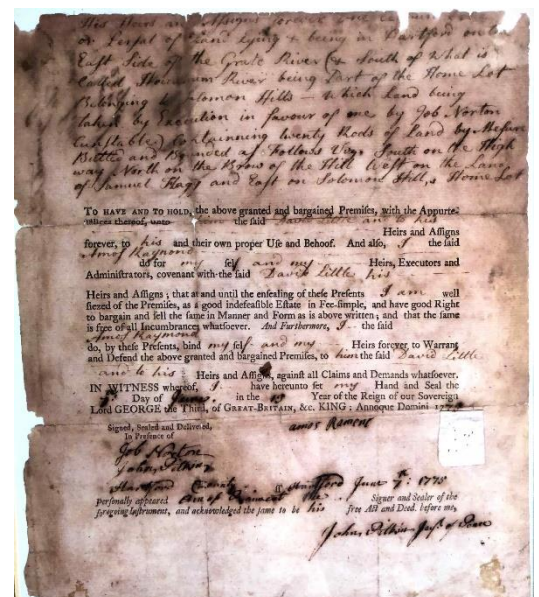 His Heirs and Assigns forever one certain
or Persal of Land Lying & being in Hartford on the
East Side of the Grate River & South of What is
Called River being Part of the Home Lot
Belonging to Soloman Hills – Which Land being
taken by Execution in favour of one by Job Norton
Cunstable Containning twenty Rods of Land by Mesure
Butted and Bounded as Follows Viz. South on the High
way North on the Brow of the Hill West on the Land
of Samuel Flagg and East on Solomon Hill,s Home Lot
TO HAVE AND TO HOLD, the above granted and bargained Premiſes, with the Appurte-
nances thereof, unto the ſaid David Little and to his
Heirs and Aſſigns
forever, to his and their own proper Uſe and Behoof. And alſo, I the ſaid
Amos Raymond
do for my ſelf and my Heirs, Executors and
Adminiſtrators, covenant with the ſaid David Little his
Heirs and Aſſigns ; that at and until the enſealing of theſe Preſents I am well
ſiezed of the Premiſes, as a good indefeaſible Eſtate in Fee-ſimple, and have good Right
to bargain and ſell the ſame in Manner and Form as is above written ; and that the ſame
is free of all Incumbrances whatſoever. And Furthermore, I the ſaid
Amos Raymond
do, by theſe Preſents, bind my ſelf and my Heirs forever, to Warrant
and Defend the above granted and bargained Premiſes, to him the ſaid David Little
and to his Heirs and Aſſigns, againſt all Claims and Demands whatſoever.
IN WITNESS whereof, I have hereunto ſet my Hand and Seal the
Day of in the 15 Year of the Reign of our Sovereign
Lord GEORGE the Third, of GREAT-BRITAIN, &c. KING ; Annoque Domini 1775
Signed, Sealed and Delivered,
In Preſence of
amos Rament
Job Norton
John Pitkin
Hartford County ſs Hartford June 7th: 1775
Perſonally appeared Amos Raiment the Signer and Sealer of the
foregoing Inſtrument, and acknowledged the ſame to be his free Act and Deed. before me,
John Pitkin Juſt of Peace